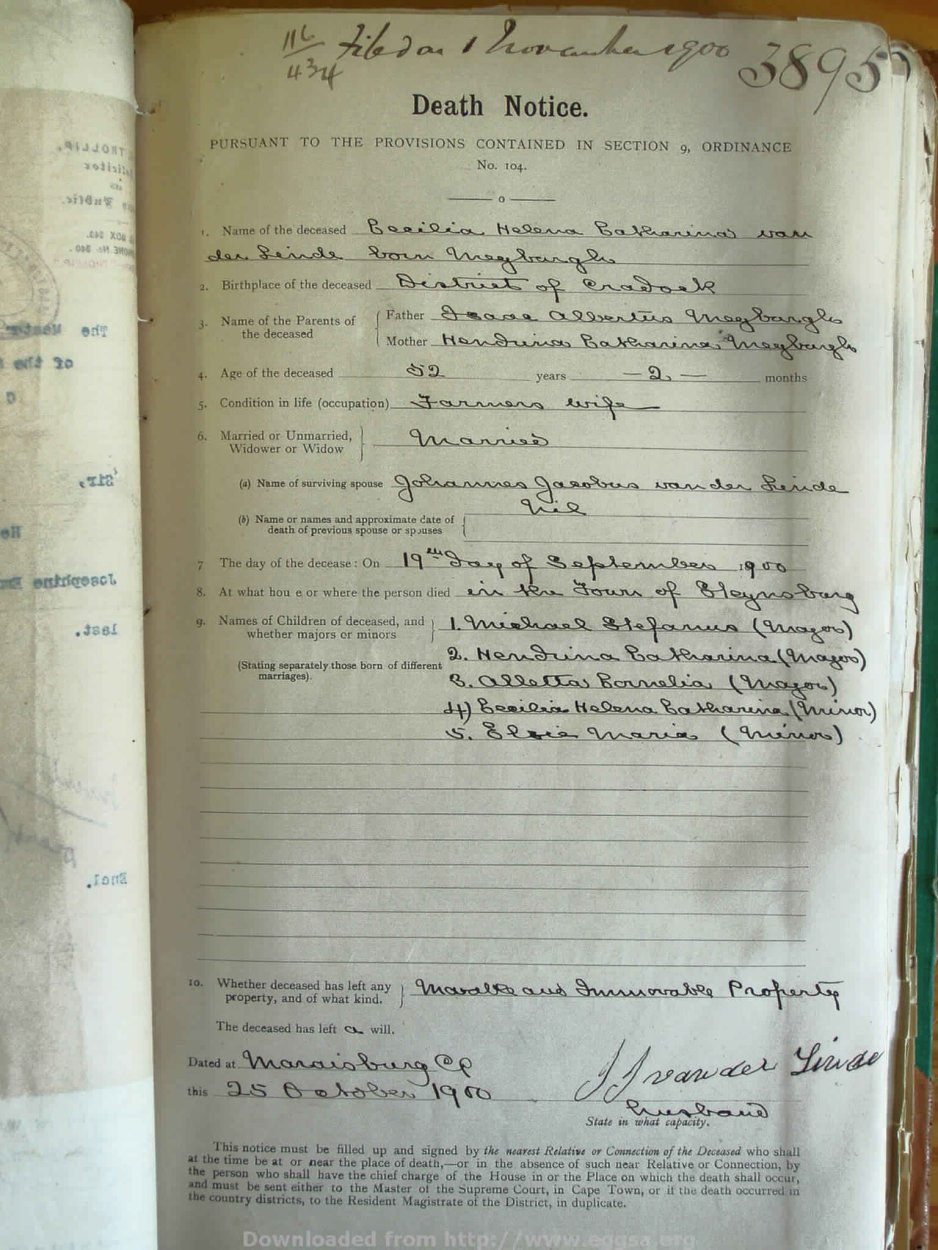 116
434
Filed on 1 November 1900
3895
Death Notice.
PURSUANT TO THE PROVISIONS CONTAINED IN SECTION 9, ORDINANCE
No. 104.
1. Name of the deceased Cecilia Helena Catharina van
der Linde born Meyburgh
2. Birthplace of the deceased District of Cradock
3. Name of the Parents of the deceased
Father Isaac Albertus Meyburgh
Mother Hendrina Catharina Meyburgh
4. Age of the deceased 52 years — 2 — months
5. Condition in life (occupation) Farmers wife
6. Married or Unmarried, Widower or Widow Married
(a) Name of surviving spouse Johannes Jacobus van der Linde
(b) Name or names and approximate date of death of previous spouse or spouses Nil
7 The day of the decease: On 19th day of September 1900
8. At what hou e or where the person died in the Town of Steynsburg
9. Names of Children of deceased, and whether majors or minors
(Stating separately those born of different marriages).
1. Michael Stefanus (Major)
2. Hendrina Catharina (Major)
3. Alletta Cornelia (Major)
4) Cecilia Helena Catharina (Minor)
5. Elsie Maria (Minor)
10. Whether deceased has left any property, and of what kind. Movable and Immovable Property
The deceased has left a will.
Dated at Maraisburg CC
this 25 October 1900
JJ van der Linde
Husband
State in what capacity.
This notice must be filled up and signed by the nearest Relative or Connection of the Deceased who shall
at the time be at or near the place of death,—or in the absence of such near Relative or Connection, by
the person who shall have the chief charge of the House in or the Place on which the death shall occur,
and must be sent either to the Master of the Supreme Court, in Cape Town, or if the death occurred in
the country districts, to the Resident Magistrate of the District, in duplicate.
Downloaded from http://www.eggsa.org